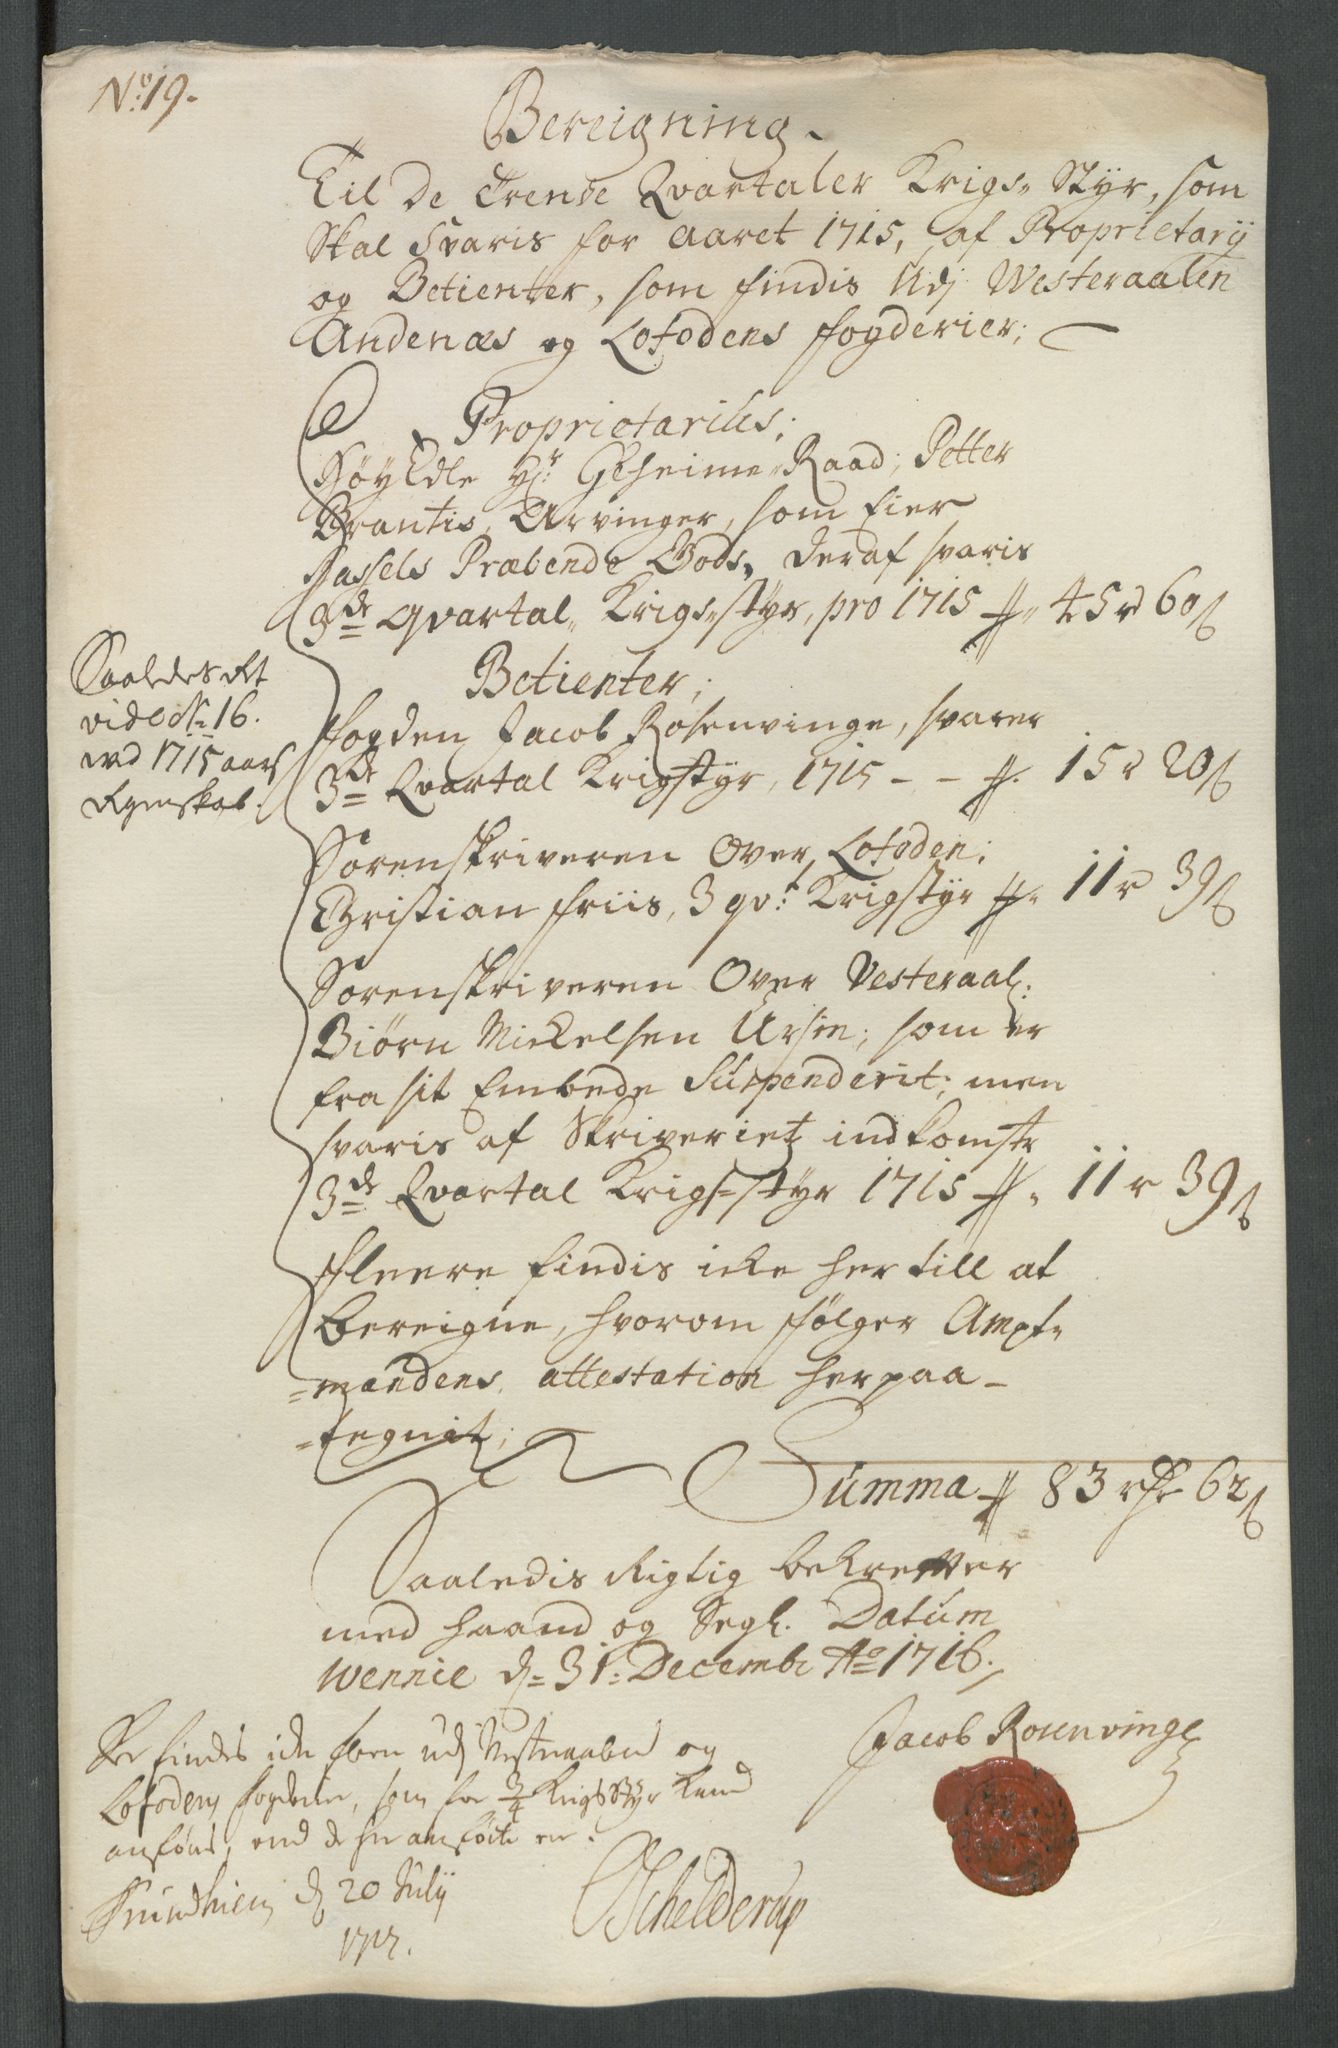 No 19.
Bereigning
Til de Trende Qvartaler Krigs-Styr, som
Skal Svaris for Aaret 1715, af Proprietarij
og Betienter, som findis Udj Westeraalen
Andenæs og Lofodens fogderier;
Proprietarius;
HøyEdle Hr Geheime Raad, Petter
Brantis Arvinger, som Eier
Hassels Præbende Gods, deraf svaris
3de Qvartal Krigs-styr, pro 1715 - 45 r 60 ß
Saaledes
vide No 16.
ved 1715 aars
Regenskab.
Betienter;
fogden Jacob Rosenvinge, svarer
3de Qvartal Krigstyr, 1715 - - 15 r 20 ß
Sorenskriveren Over Lofoden;
Christian Friis, 3 qvt Krigstyr - 11 r 39 ß
Sorenskriveren Over Vesteraal:
Biørn Mickelsen Ursin; som er
fra sit Embede Suspenderit; men
svaris af Skriveriets indkomst
3de Qvartal Krigs-styr 1715 - 11 r 39 ß
Fleere findis icke her till at
bereigne, hvorom følger Ampt-
-mandens attestation herpaa-
-tegnit;
Summa 83 rdr 62 ß
Saaledis Rigtig bekrefter
med haand og Segl. Datum
Wennie d= 31: Decembr Ao 1716.
Jacob Rosenvinge
Der findes icke flere udj Vesteraalen og
Lofodens fogderie, som for 3/4 Krigs Styr kand
anføres, end de her anførte er.
d 20 Julij
1717.
Schelderup